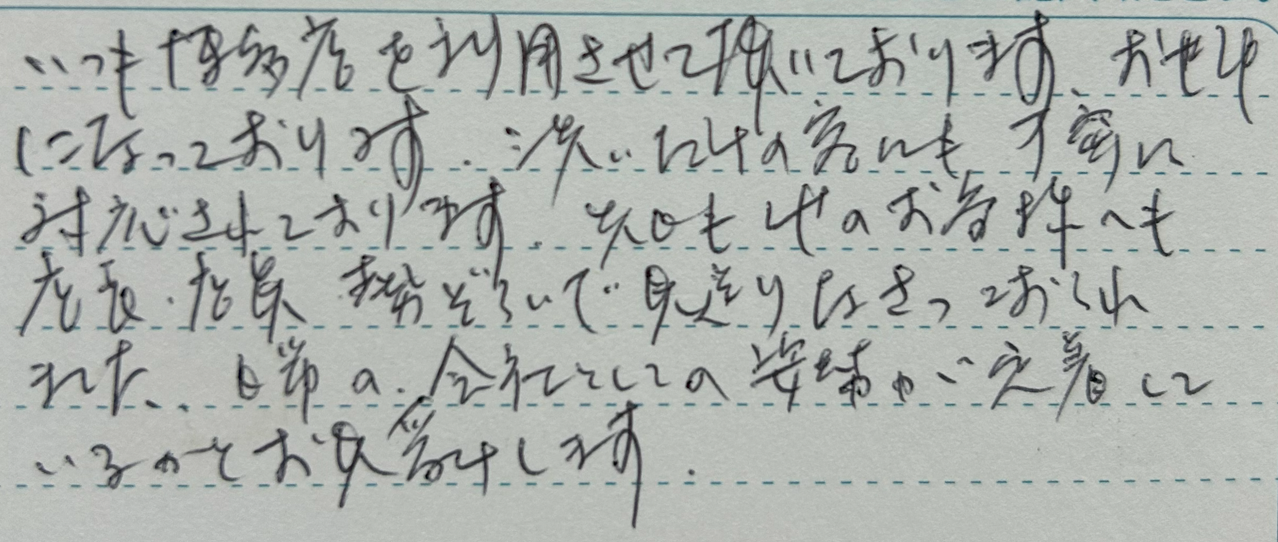 いつも博多店を利用させて頂いております、おせわ
になっております。洗いだけの客にも丁寧に
対応されております。先日も他のお客様へも
店長・店員 勢ぞろいで見送りなさっておられ
ました、日常の、会社としての姿勢が定着して
いるかとお見受けします。